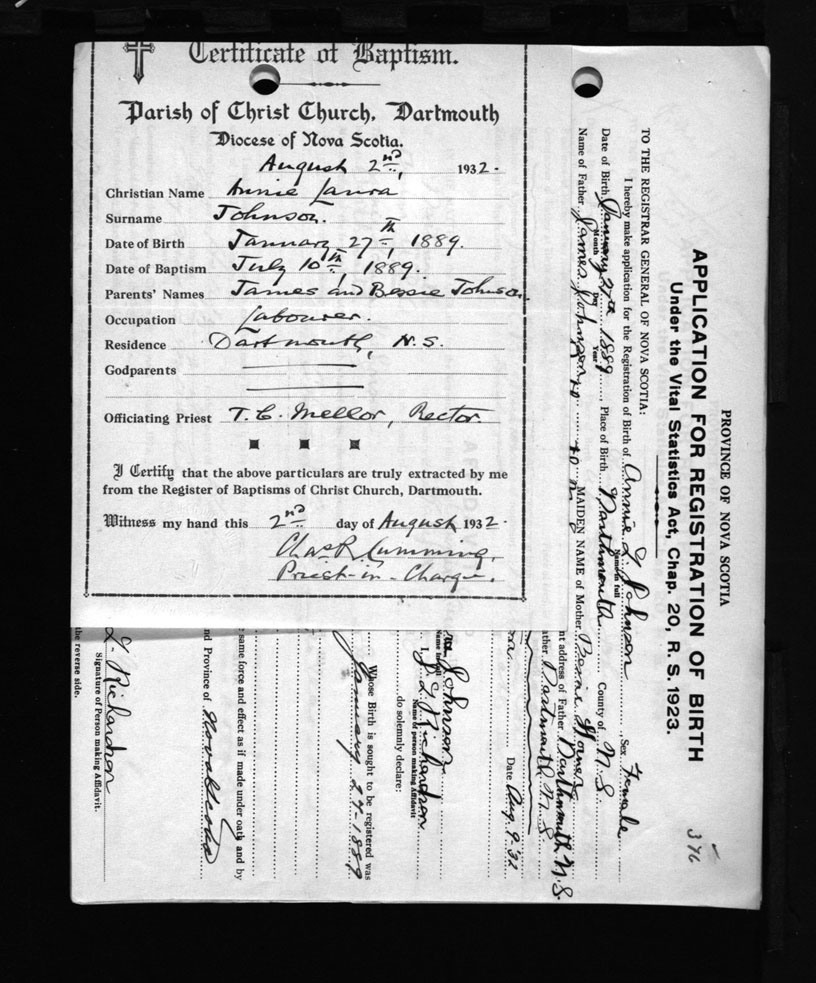 Certificate of Baptism.
Parish of Christ Church, Dartmouth
Diocese of Nova Scotia.
August 2nd, 1932.
Christian Name Annie Laura
Surname Johnson.
Date of Birth January 27th, 1889.
Date of Baptism July 10th, 1889.
Parents' Names James and Bessie Johnson.
Occupation Labourer.
Residence Dartmouth, N.S.
Godparents
Officiating Priest T. C. Mellor, Rector.
I Certify that the above particulars are truly extracted by me
from the Register of Baptisms of Christ Church, Dartmouth.
Witness my hand this 2nd day of August 1932.
Chas R. Cumming,
Priest-in-Charge.
376
PROVINCE OF NOVA SCOTIA
APPLICATION FOR REGISTRATION OF BIRTH
Under the Vital Statistics Act, Chap. 20, R. S. 1923.
TO THE REGISTRAR GENERAL OF NOVA SCOTIA:
I hereby make application for the Registration of Birth of Annie L Johnson Sex Female
Name in full
Date of Birth January 27th 1889 Place of Birth Dartmouth County of N.S.
Month Day Year
Name of Father James Johnson MAIDEN NAME of Mother Bessie
nt address of Father Dartmouth N.S.
ther Dartmouth N.S.
Date Aug. 9-32
Johnson
Name in full
I, L Richardson
Name of person making Affidavit
do solemnly declare:
Whose Birth is sought to be registered was
January 27-1889
same force and effect as if made under oath and by
nd Province of Nova Scotia
L. Richardson
Signature of Person making Affidavit.
he reverse side.